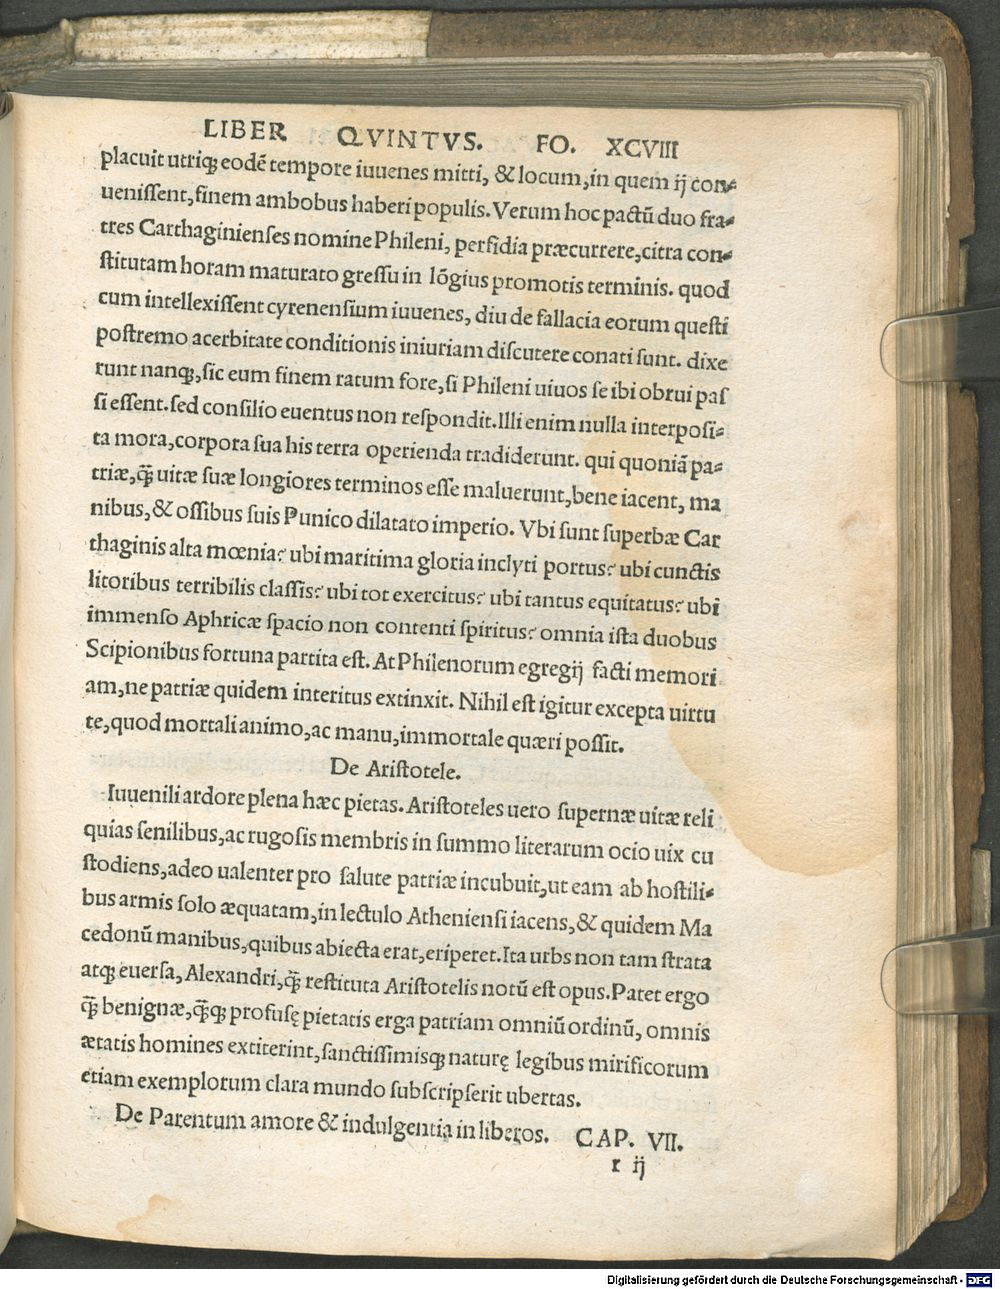 LIBER QVINTVS. FO. XCVIII
placuit utriqꝫ eodē tempore iuuenes mitti, & locum,in quem ij con⸗
uenissent,finem ambobus haberi populis.Verum hoc pactū duo fra⸗
tres Carthaginienses nomine Phileni, perfidia præcurrere,citra con⸗
stitutam horam maturato gressu in lōgius promotis terminis. quod
cum intellexissent cyrenensium iuuenes, diu de fallacia eorum questi
postremo acerbitate conditionis iniuriam discutere conati sunt. dixe
runt nanqꝫ,sic eum finem ratum fore,si Phileni uiuos se ibi obrui pas
si essent.sed consilio euentus non respondit.Illi enim nulla interposi⸗
ta mora,corpora sua his terra operienda tradiderunt. qui quoniā pa⸗
triæ,q̄ꝫ uitæ suæ longiores terminos esse maluerunt,bene iacent, ma
nibus,& ossibus suis Punico dilatato imperio. Vbi sunt superbæ Car
thaginis alta mœnia? ubi maritima gloria inclyti portus? ubi cunctis
litoribus terribilis classis? ubi tot exercitus? ubi tantus equitatus? ubi
immenso Aphricæ spacio non contenti spiritus? omnia ista duobus
Scipionibus fortuna partita est. At Philenorum egregij facti memori
am,ne patriæ quidem interitus extinxit. Nihil est igitur excepta uirtu
te,quod mortali animo,ac manu,immortale quæri possit.
De Aristotele.
Iuuenili ardore plena hæc pietas. Aristoteles uero supernæ uitæ reli
quias senilibus,ac rugosis membris in summo literarum ocio uix cu
stodiens,adeo ualenter pro salute patriæ incubuit,ut eam ab hostili⸗
bus armis solo æquatam,in lectulo Atheniensi iacens,& quidem Ma
cedonū manibus,quibus abiecta erat,eriperet.Ita urbs non tam strata
atqꝫ euersa, Alexandri,q̄ꝫ restituta Aristotelis notū est opus.Patet ergo
q̄ꝫ benignæ,q̄ꝫqꝫ profusę pietatis erga patriam omniū ordinū, omnis
ætatis homines extiterint,sanctissimisqꝫ naturę legibus mirificorum
etiam exemplorum clara mundo subscripserit ubertas.
De Parentum amore & indulgentia in liberos. CAP. VII.
r ij
Digitalisierung gefördert durch die Deutsche Forschungsgemeinschaft - DFG